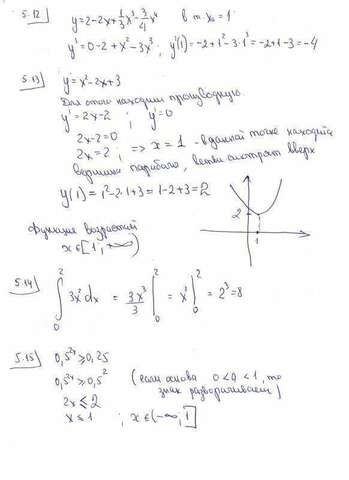 5.12) y=2-2x+1/3x³-3/4x⁴ в т. x₀=1
y'=0-2+x²-3x³; y'(1)=-2+1²-3·1³=-2+1-3=-4
5.13) y=x²-2x+3
Для этого находим производную.
y'=2x-2; y'=0
2x-2=0
2x=2; => x=1 - в данной точке находится
вершина параболы, ветви смотрят вверх
y(1)=1²-2·1+3=1-2+3=2
Функция возрастает
x∈[1;+∞)
2
1
5.14) ∫₀² 3x²dx = 3x³/3 |₀² = x³ |₀² = 2³=8
5.15) 0,5²ˣ≥0,25
0,5²ˣ≥0,5² (если основа 0<a<1, то
2x≤2 знак разворачиваем)
x≤1 ; x∈(-∞,1]